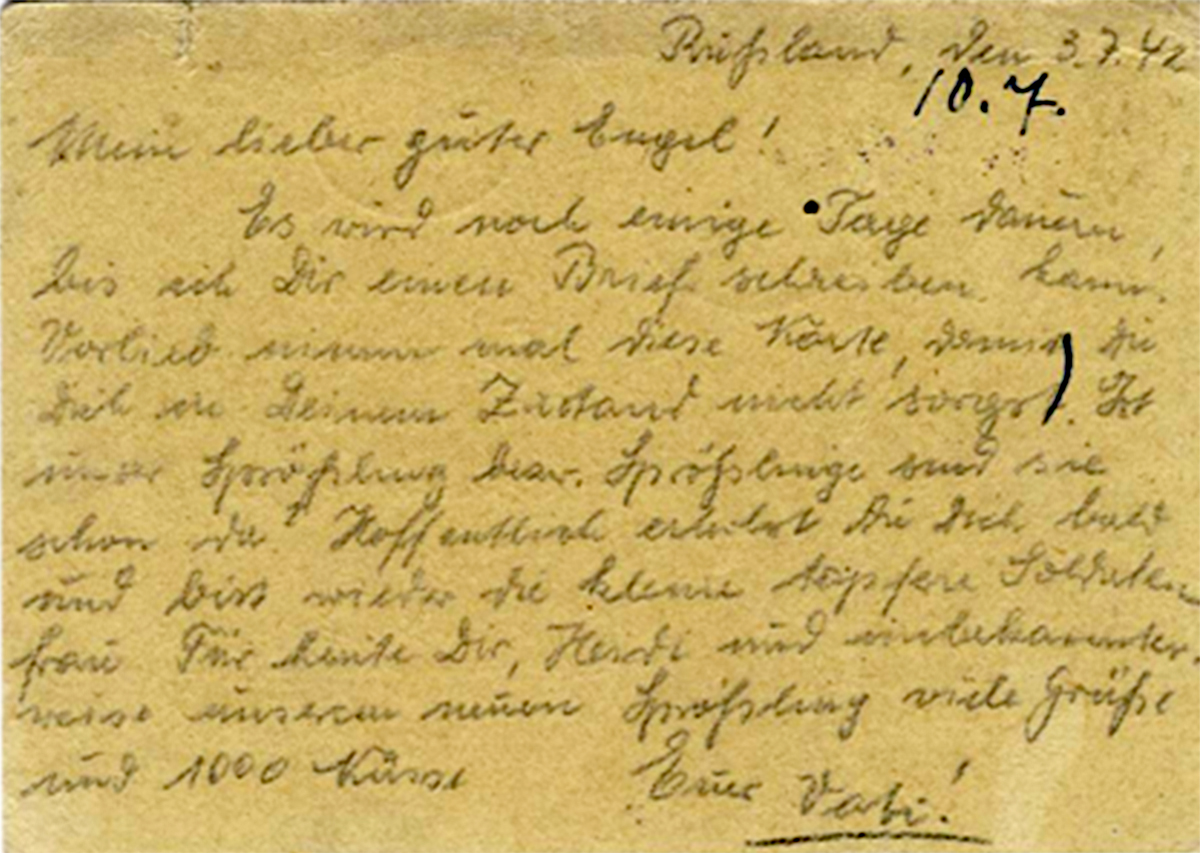 Rußland, den 3.7.42
10.7.
Mein lieber guter Engel!
Es wird noch einige Tage dauern,
bis ich Dir einen Brief schreiben kann.
Vorlieb nimm mal diese Karte, damit Du
Dich in Deinem Zustand nicht sorgst. Ist
unser Sprößling bezw. Sprößlinge sind sie
schon da? Hoffentlich erholst Du Dich bald
und bist wieder die kleine tapfere Soldaten
frau Für heute Dir, Heidi und unbekannter-
weise unserem neuen Sprößling viele Grüße
und 1000 Küsse
Euer Vati!